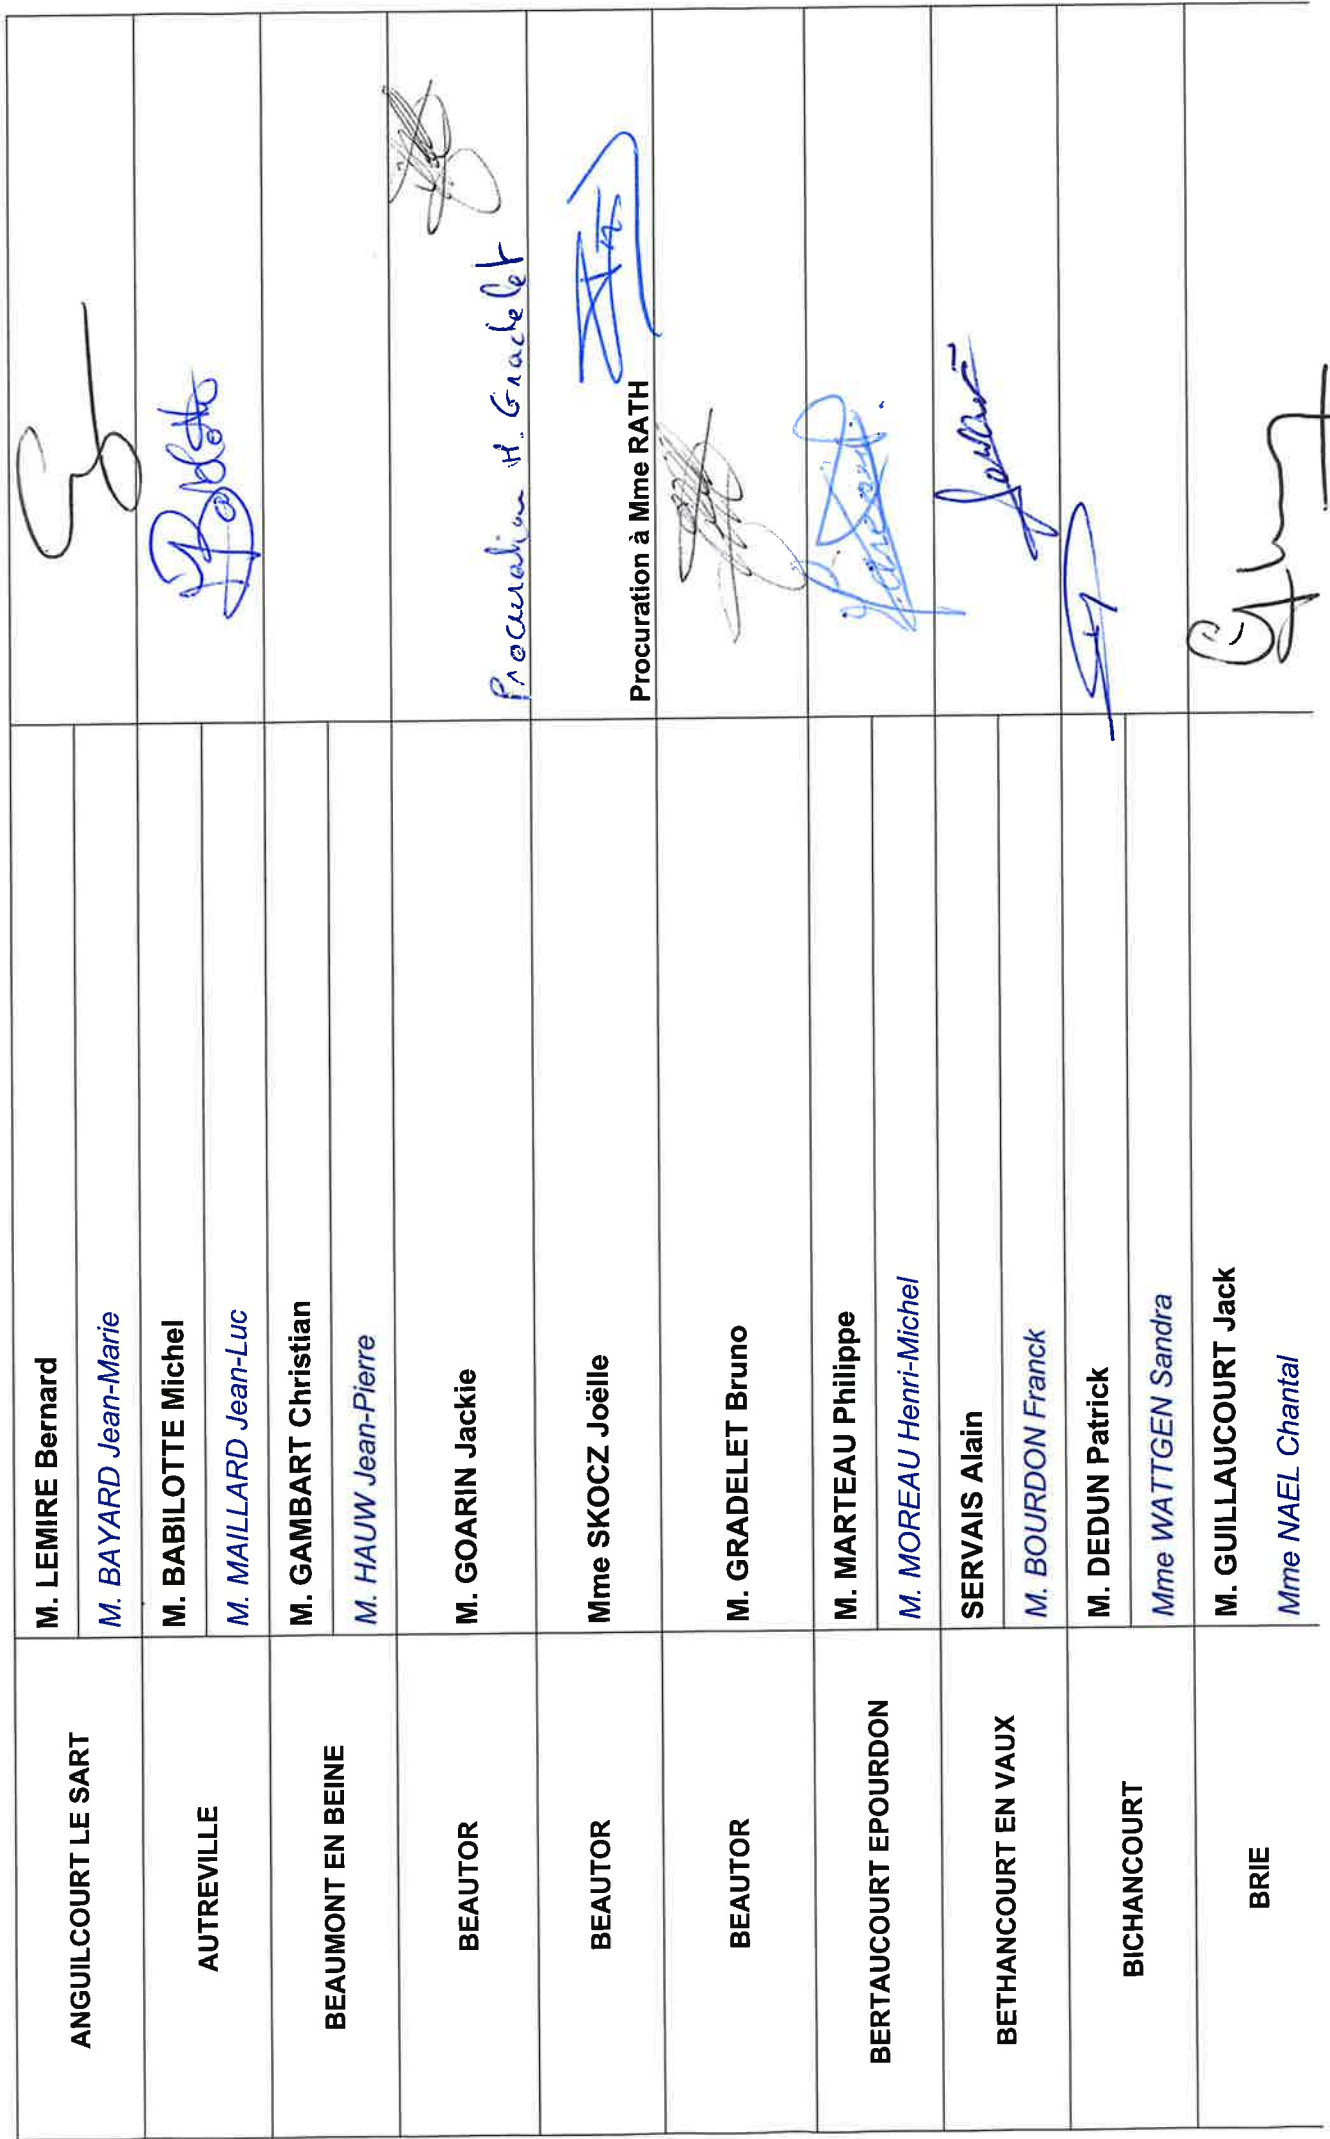 ANGUILCOURT LE SART
M. LEMIRE Bernard
M. BAYARD Jean-Marie
AUTREVILLE
M. BABILOTTE Michel
M. MAILLARD Jean-Luc
BEAUMONT EN BEINE
M. GAMBART Christian
M. HAUW Jean-Pierre
BEAUTOR
M. GOARIN Jackie
Procuration M. Gradelet
BEAUTOR
Mme SKOCZ Joëlle
Procuration à Mme RATH
BEAUTOR
M. GRADELET Bruno
BERTAUCOURT EPOURDON
M. MARTEAU Philippe
M. MOREAU Henri-Michel
BETHANCOURT EN VAUX
SERVAIS Alain
M. BOURDON Franck
BICHANCOURT
M. DEDUN Patrick
Mme WATTGEN Sandra
BRIE
M. GUILLAUCOURT Jack
Mme NAEL Chantal